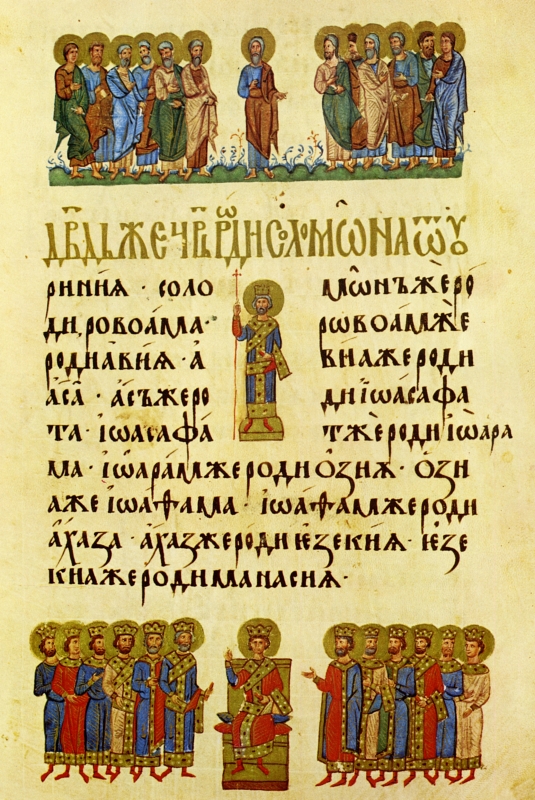 Д҃В҃ДЬ ЖЕ Ч҃РЬ РѠДИ СОЛОМѠ҃НА ѾОУ
рииниѧ · соло мѡнъ жеро
ди, ровоама· ровоамже
роди авиѧ · а виа жероди
аса · асъжеро ди іѡасафа
та · іѡасафа тжероди іѡара
ма · іѡарамжероди озиѧ · ози
ажеіѡаѳама · іѡаѳамжероди
ахаза · ахазжероди іезекиѧ · іезе
киажероди манасиѧ ·